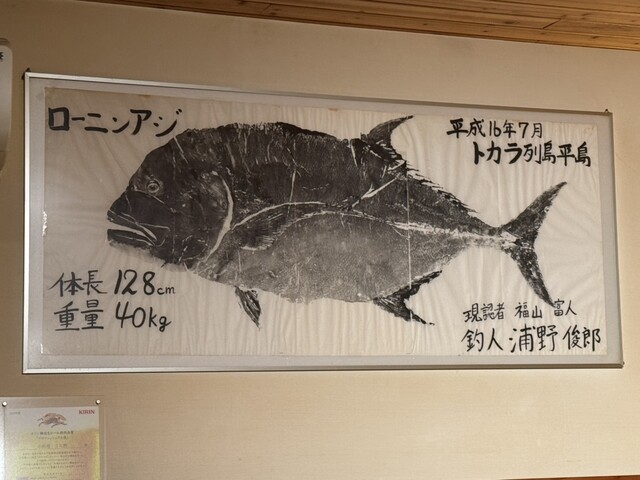 ローニンアジ
平成16年7月
トカラ列島平島
体長 128cm
重量 40kg
現認者 福山 富人
釣人 浦野 俊郎
KIRIN